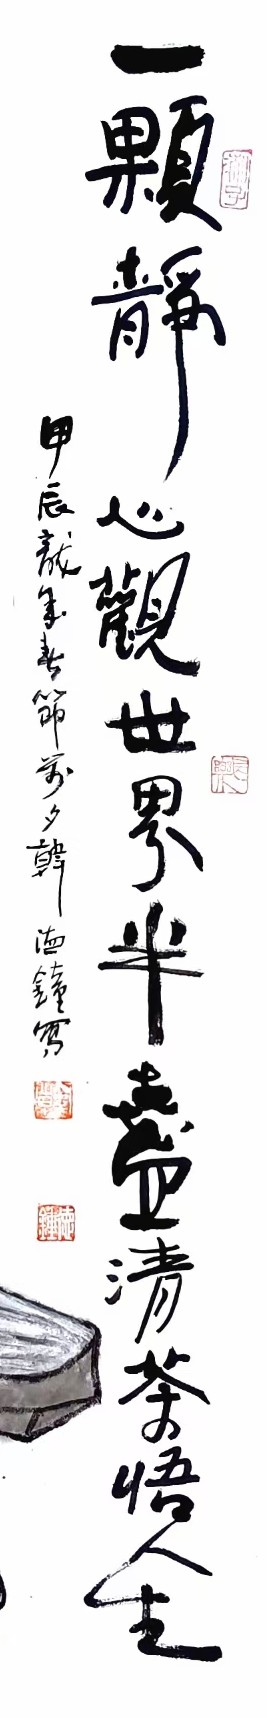 一顆靜心觀世界半壺清茶悟人生
甲辰龍年春節前夕韓德鐘寫